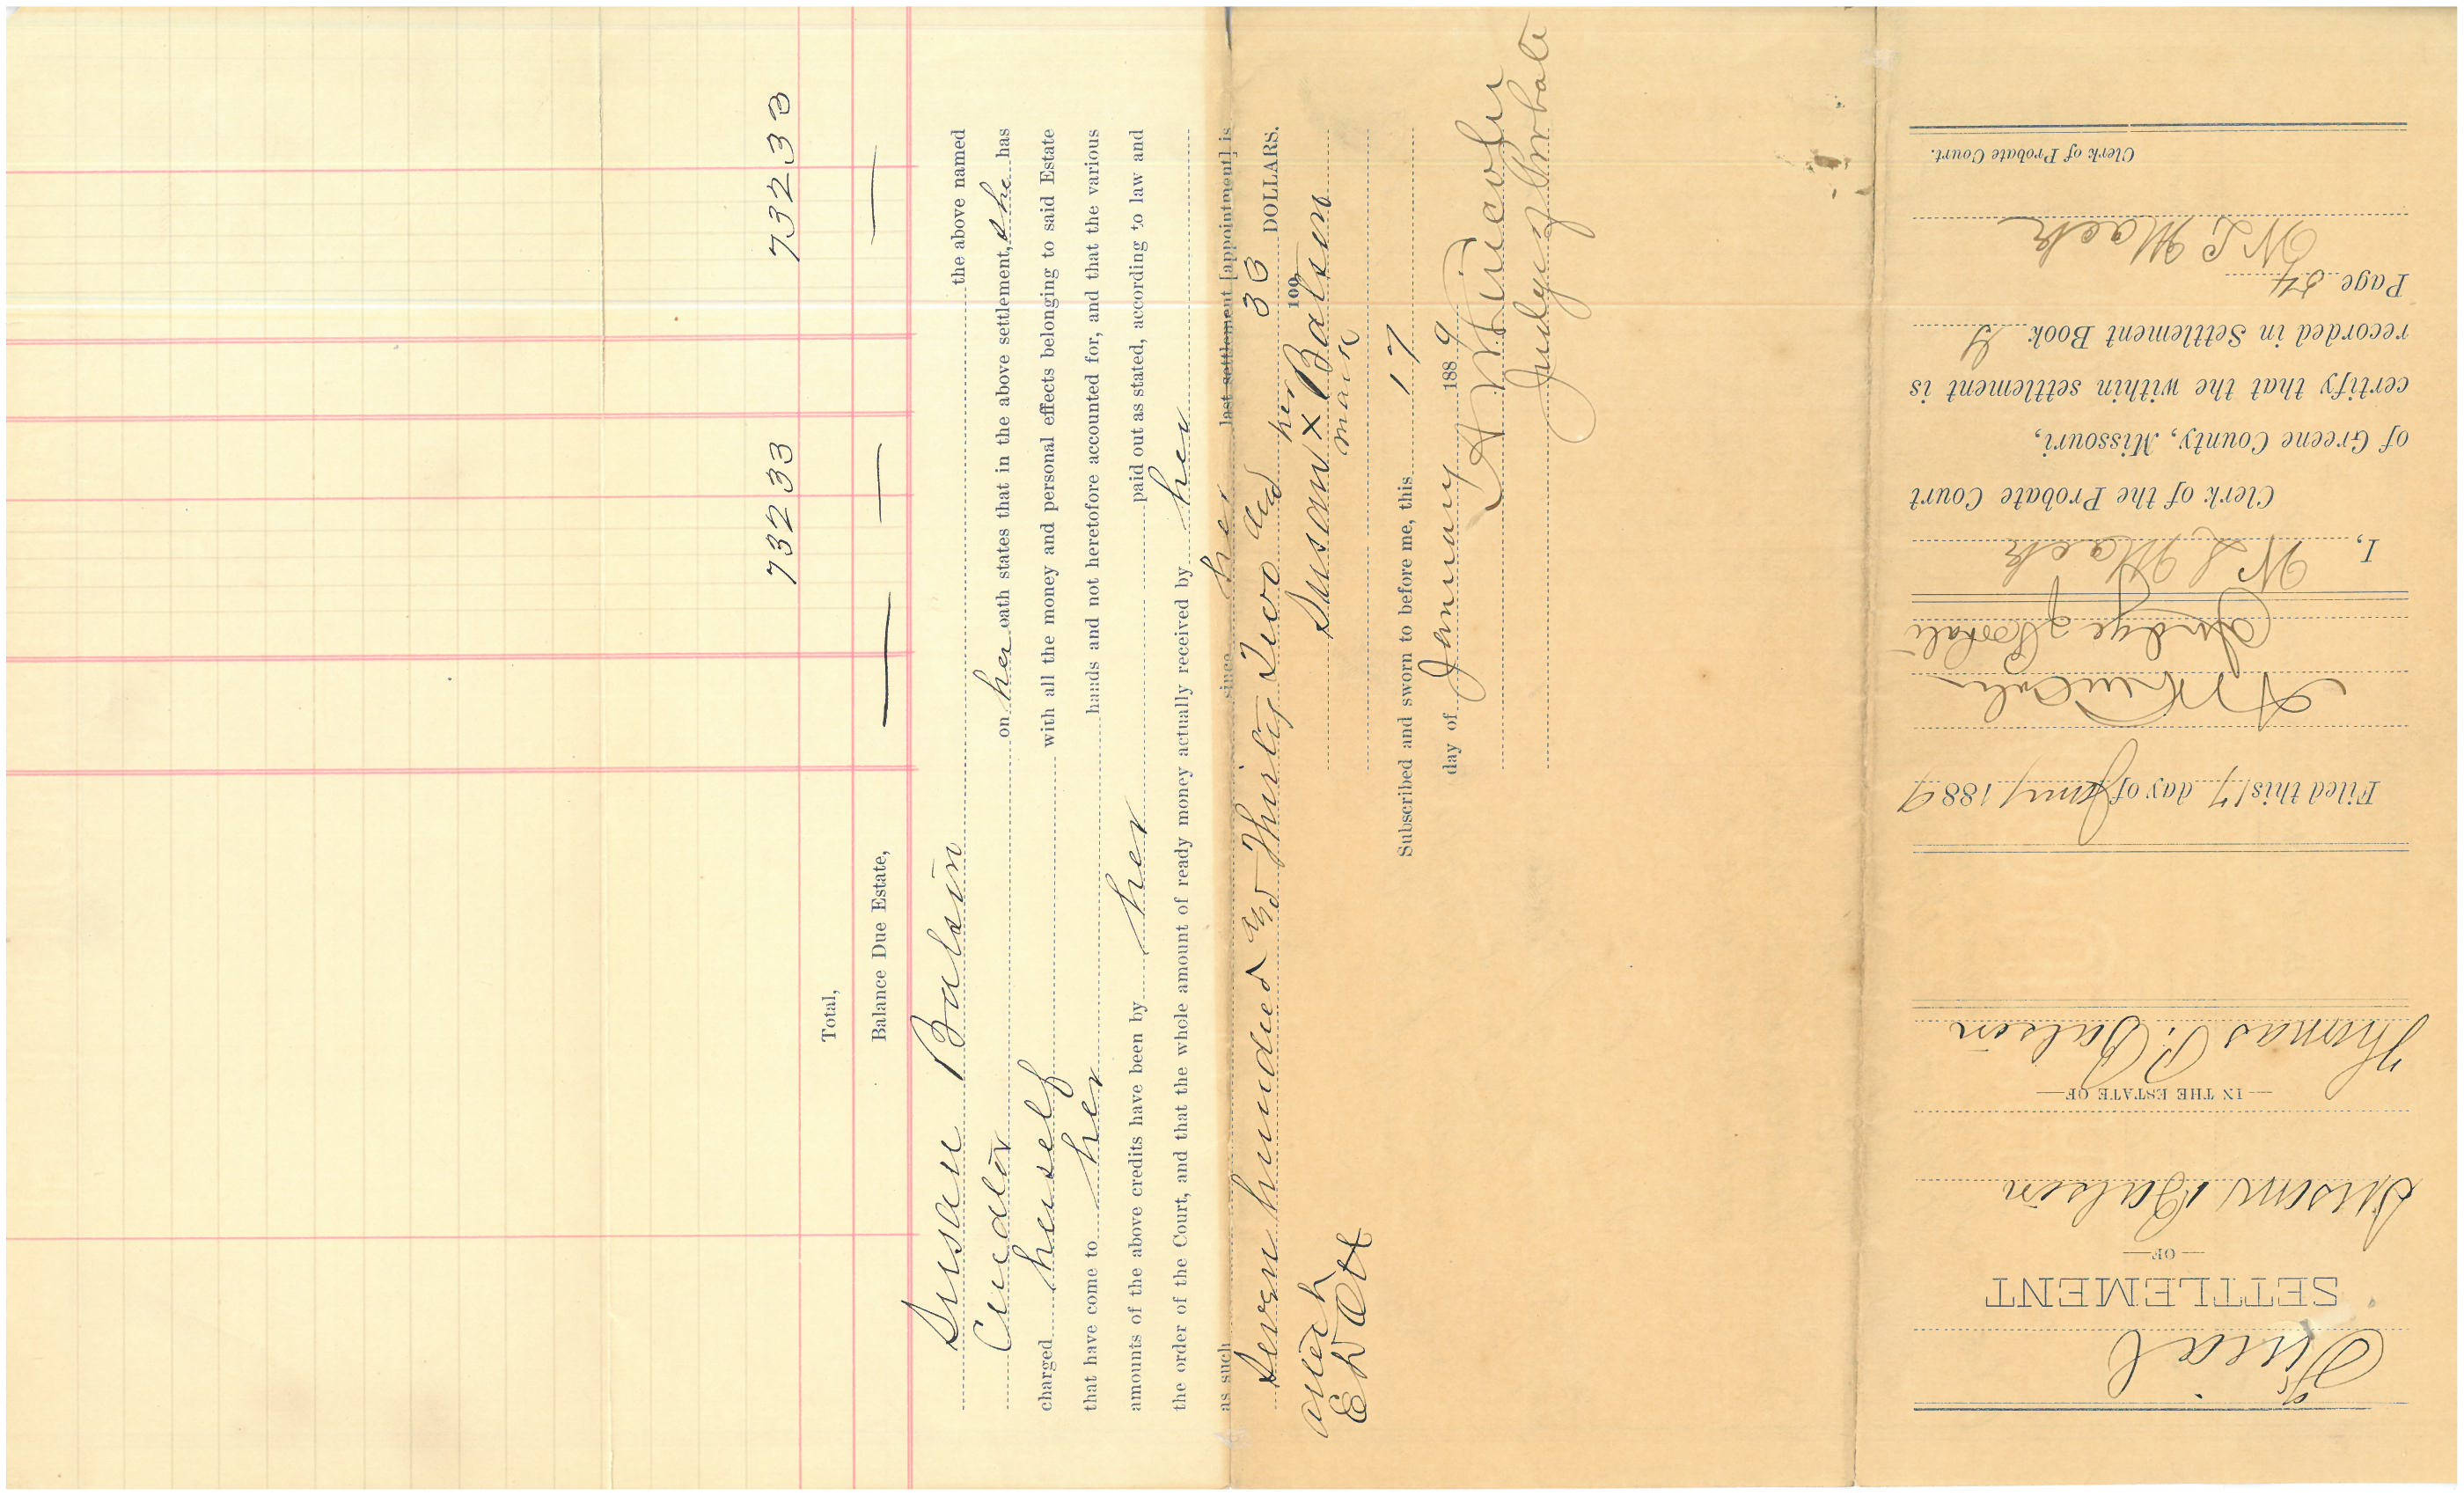 732 33 732 33
Total,
Balance Due Estate, — — —
Susan Balsin the above named
on her oath states that in the above settlement, she has
charged herself with all the money and personal effects belonging to said Estate
that have come to her hands and not heretofore accounted for, and that the various
amounts of the above credits have been by her paid out as stated, according to law and
the order of the Court, and that the whole amount of ready money actually received by her
as such since her last settlement [appointment] is
Seven hundred and Thirty Two and 33/100 DOLLARS.
her
Susan x Balsen
mark
attest
Subscribed and sworn to before me, this 17
day of January 1889
Judge of Probate
Final
SETTLEMENT
—OF—
Susan Balsin
—IN THE ESTATE OF—
Thomas P. Balsin
Filed this 17 day of Jany 1889
Judge of Probate
I, W L Mack
Clerk of the Probate Court
of Greene County, Missouri,
certify that the within settlement is
recorded in Settlement Book
Page 54
W L Mack
Clerk of Probate Court.